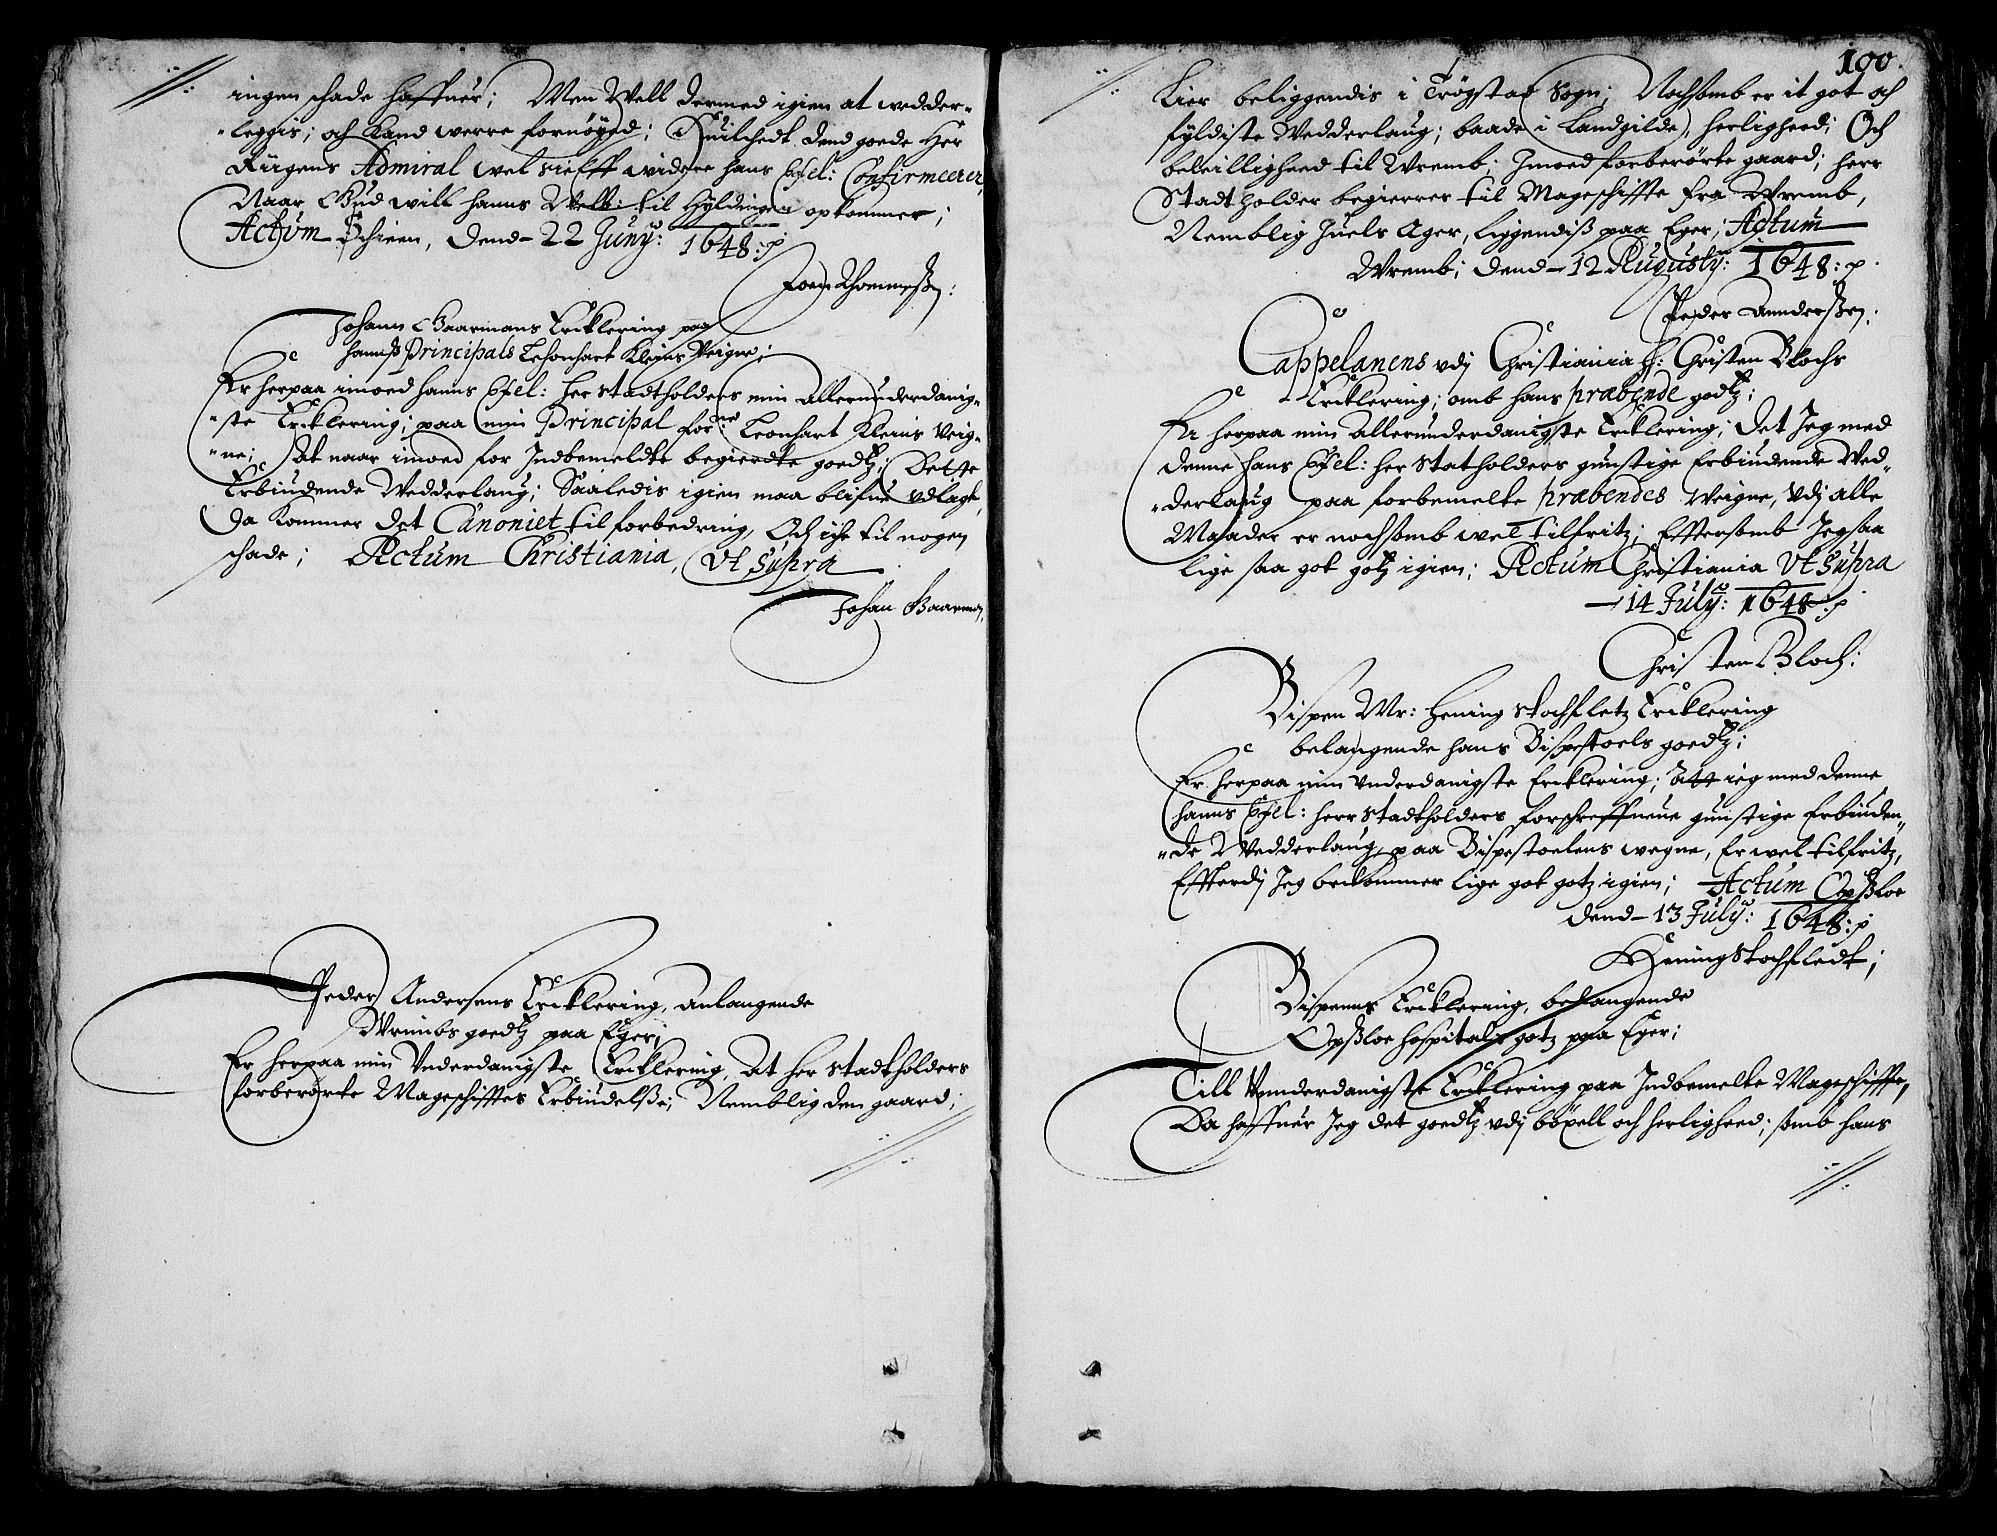 ingen schade haffuer; Men Well dermed igien at wedder-
leggis; och Kand werre fornøyed; Huilchedt dend goede Her
Rigens Admiral wel sielff widere hans Exel: Confirmeerer,
Naar Gud will hanns Maÿt: til Hyldingen opkommer;
Actum Schieen, Dend 22 Junÿ: 1648:
Johann Gaarmans Ercklering paa
hannß Principals Lehonhart Kleins Veigne;
Er herpaa imoed hanns Exel: Her Stadtholders min allerunderdanig-
ste Ercklering; paa min Principal forne: Leonhart Kleins Veig-
ne; At naar imoed for Indbemeldte begierdte goedtz; Dette
Erbiudende Wedderlaug; Saaledis igien maa blifue vdlagt,
Da Kommer det Canoniet til forbedring, Och iche til nogen
schade; Actum Christiania, Vt Supra
Johan Gaarman,
Peder Andersens Ercklering, Anlangende
Wrembs goedtz paa Eger;
Er herpaa min Vnderdanigste Ercklering, At Her Stadtholders
forberørte Mageschifftes Erbiudelße; Nemblig den gaard;
100.
Lier beliggendis i Trøgstad Sogn; Nochsomb er it got och
fyldiste Wedderlaug; baade i Landgilde, herligheed; Och
beleilligheed til Wremb; Imoed forberørte gaard; herr
Stadtholder begierrer til Mageschiffte fra Wremb,
Nemblig Juels Ager, liggendiß paa Eger; Actum
Wremb; Dend 12 Augusty: 1648:
Peder Annderßen;
Cappelanens vdj Christiania H: Christen Blochs
Ercklering; omb hans præbende godtz;
Er herpaa min allerunderdanigste Ercklering; Det Jeg med
denne hans Exel: her Statholders gunstige Erbiudende Wed-
derlaug paa forbemelte præbendes Veigne, Vdj alle
Maader er nochsomb wel tilfritz; Efftersomb Jeg saa
lige saa got gotz igien; Actum Christiania Vt Supra
14 July: 1648:
Christen Bloch:
Bispen Mr: Hening Stochfletz Ercklering
belangende hans Bispestoels goedtz;
Er herpaa min vnderdanigste Ercklering; Att ieg med denne
hanns Exel: herr Stadtholders forschreffneue gunstige Erbiuden-
de Wedderlaug, paa Bispestoelens wegne, Er wel tilfritz,
Effterdj Jeg bekommer lige got gotz igien; Actum Opßloe
Dend 13 July: 1648:
Hening Stochfledt;
Bispenns Ercklering, belangende
Opßloe Hospitals gotz paa Eger;
Till Vnnderdanigste Ercklering paa Indbemelte Mageschiffte,
Da haffuer Jeg det goedtz vdj böxell och herligheed; somb hans